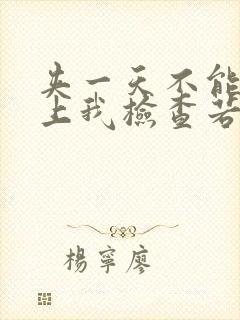 失一天不能
上我檢查若
楊寧廖